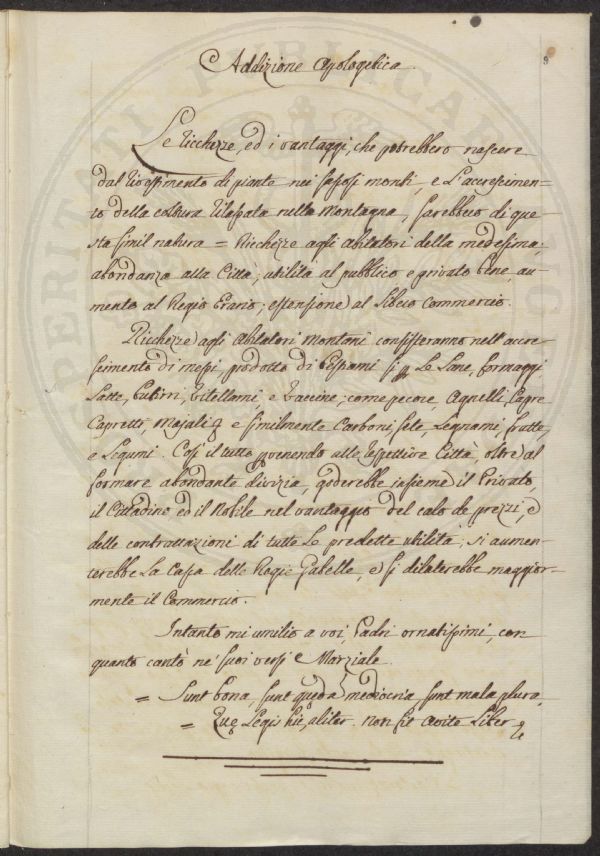 Addizione Apologetica.
8
Le Ricchezze, ed i vantaggi, che potrebbero nascere
dal rivestimento di piante nei sassosi monti, e l'accrescimen-
to della coltura rilassata nella montagna, sarebbero di que-
sta simil natura = Ricchezze agli abitatori della medesima,
abondanza alla Città; utilità al pubblico e privato bene, au-
mento al Regio Erario; estensione al libero commercio.
Ricchezze agli abitatori montani consisteranno nell'accre-
scimento di messi, prodotto di Bestiami sì per le Lane, formaggi
Latte, butirri, vitellami e vaccine; come pecore, Agnelli, Capre
Capretti, Majali e similmente Carboni, sete, Legnami, frutte,
e Legumi. Così il tutto venendo alle respettive Città, oltre al
formare abondante divizia, goderebbe insieme il Privato,
il Cittadino ed il Nobile nel vantaggio del calo de prezzi, e
delle contrattazioni di tutte le predette utilità; si aumen-
terebbe La Cassa delle Regie Gabelle, e si dilaterebbe maggior-
mente il Commercio.
Intanto mi umilio a voi, Padri ornatissimi, con
quanto cantò ne' suoi versi Marziale
= Sunt bona, sunt quędã mediocria, sunt mala plura,
= Quę Legis hic, aliter non fit Avite Liber